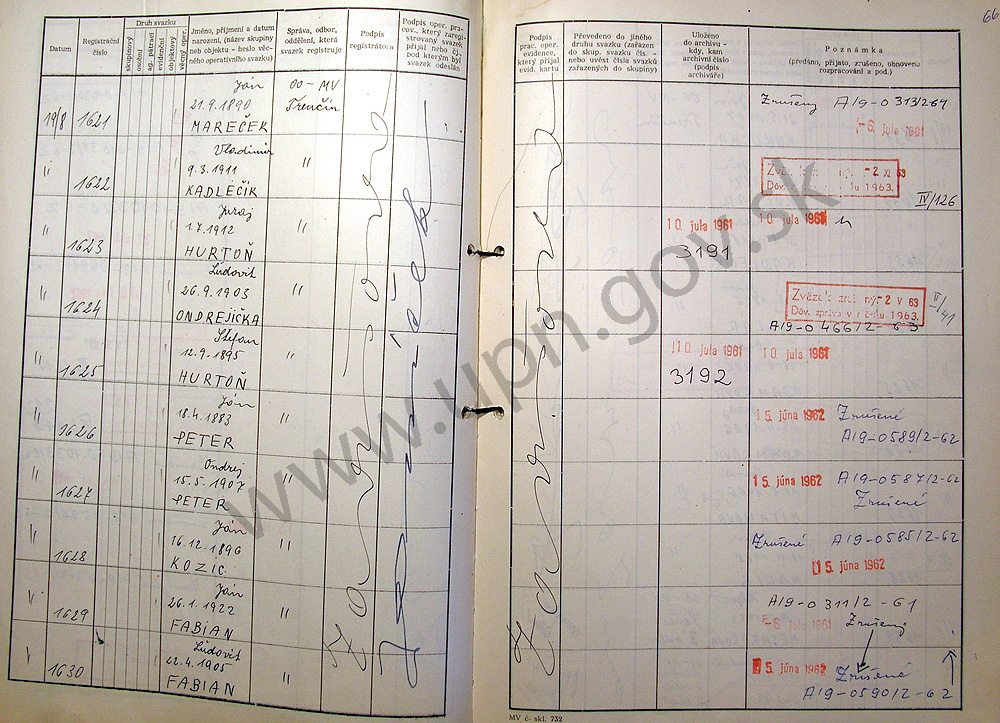 66
Datum
Registrační číslo
Druh svazku
skupinový
osobní
ag. pátrací
evidenční
objektový
věcný oper.
Jméno, příjmení a datum
narození, (název skupiny
neb objektu - heslo věc-
ného operativního svazku)
Správa, odbor,
oddělení, která
svazek registruje
Podpis
registrátora
Podpis oper. pra-
cov., který zaregi-
strovaný svazek
přijal nebo čj.
pod kterým byl
svazek odeslán
Podpis
prac. oper.
evidence,
který přijal
evid. kartu
Převedeno do jiného
druhu svazku (zařazen
do skup. svazku čís. -
nebo uvést čísla svazků
zařazených do skupiny)
Uloženo
do archivu -
kdy, kam
archivní číslo
(podpis
archiváře)
Poznámka
(předáno, přijato, zrušeno, obnoveno
rozpracování a pod.)
19/8 1621 Ján
21.9.1890
MAREČEK
OO-MV
Trenčín
Zrušený A19-0313/2-61
-6. júla 1961
" 1622 Vladimír
9.3.1911
KADLEČÍK "
-2 XI 63
1963.
IV/126
" 1623 Juraj
1.7.1912
HURTOŇ "
10. júla 1961
3191
10. júla 1961
" 1624 Ľudovít
26.9.1903
ONDREJIČKA "
-2 V 63
1963.
II/41
A19-0466/2-63
" 1625 Štefan
12.9.1895
HURTOŇ "
10. júla 1961
3192
10. júla 1961
" 1626 Ján
18.4.1883
PETER "
15. júna 1962 Zrušené
A19-0589/2-62
" 1627 Ondrej
15.5.1907
PETER "
15. júna 1962 A19-0587/2-62
Zrušené
" 1628 Ján
16.12.1896
KOZIC "
Zrušené A19-0585/2-62
15. júna 1962
" 1629 Ján
26.1.1922
FABIAN "
A19-0311/2-61
-6. júla 1961 Zrušený
" 1630 Ľudovít
22.4.1905
FABIAN "
15. júna 1962 Zrušené
A19-0590/2-62
MV č. skl. 732
www.upn.gov.sk